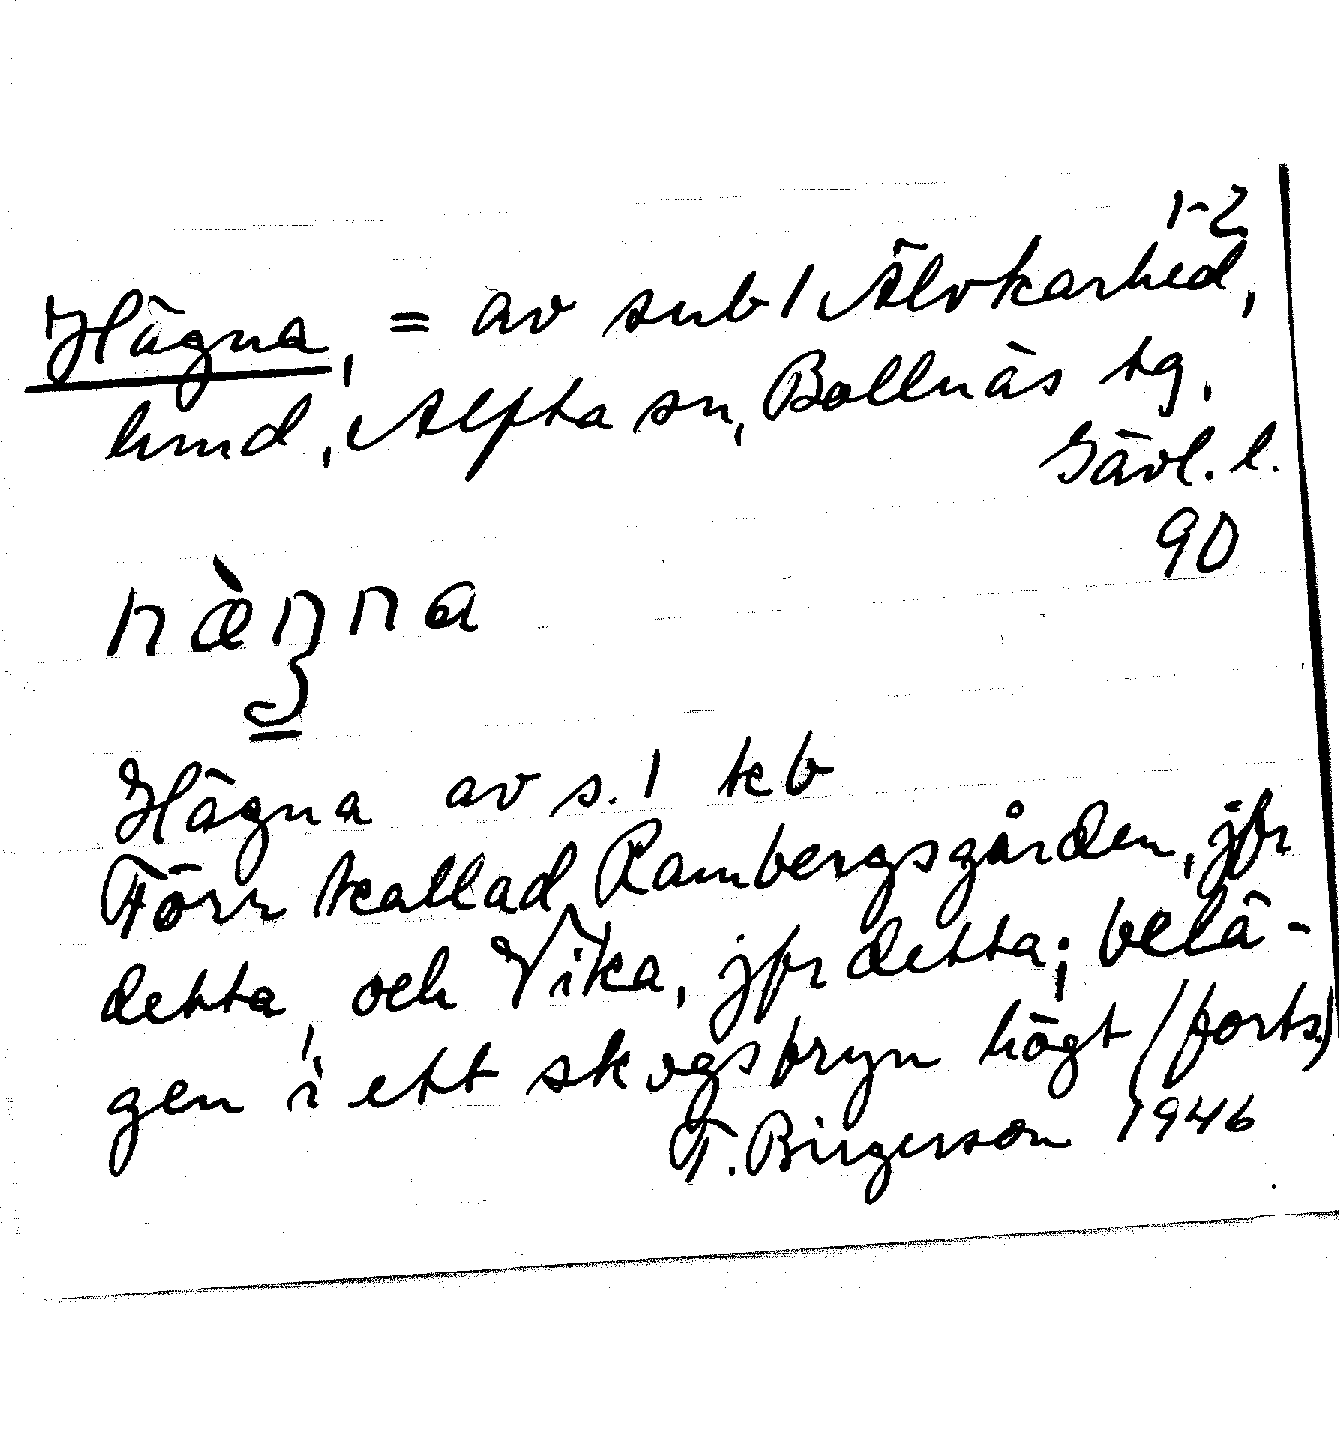 1-2
Hägna, = av sub 1 Älvkarhed,
hmd, Alfta sn, Bollnäs tg.
Gävl. l.
90
hæ̀ŋna
Hägna av s. 1 kb
Förr kallad Rambergsgården, jfr
detta, och Vika, jfr detta; belä-
gen i ett skogsbryn högt (forts)
T. Birgerson 1946